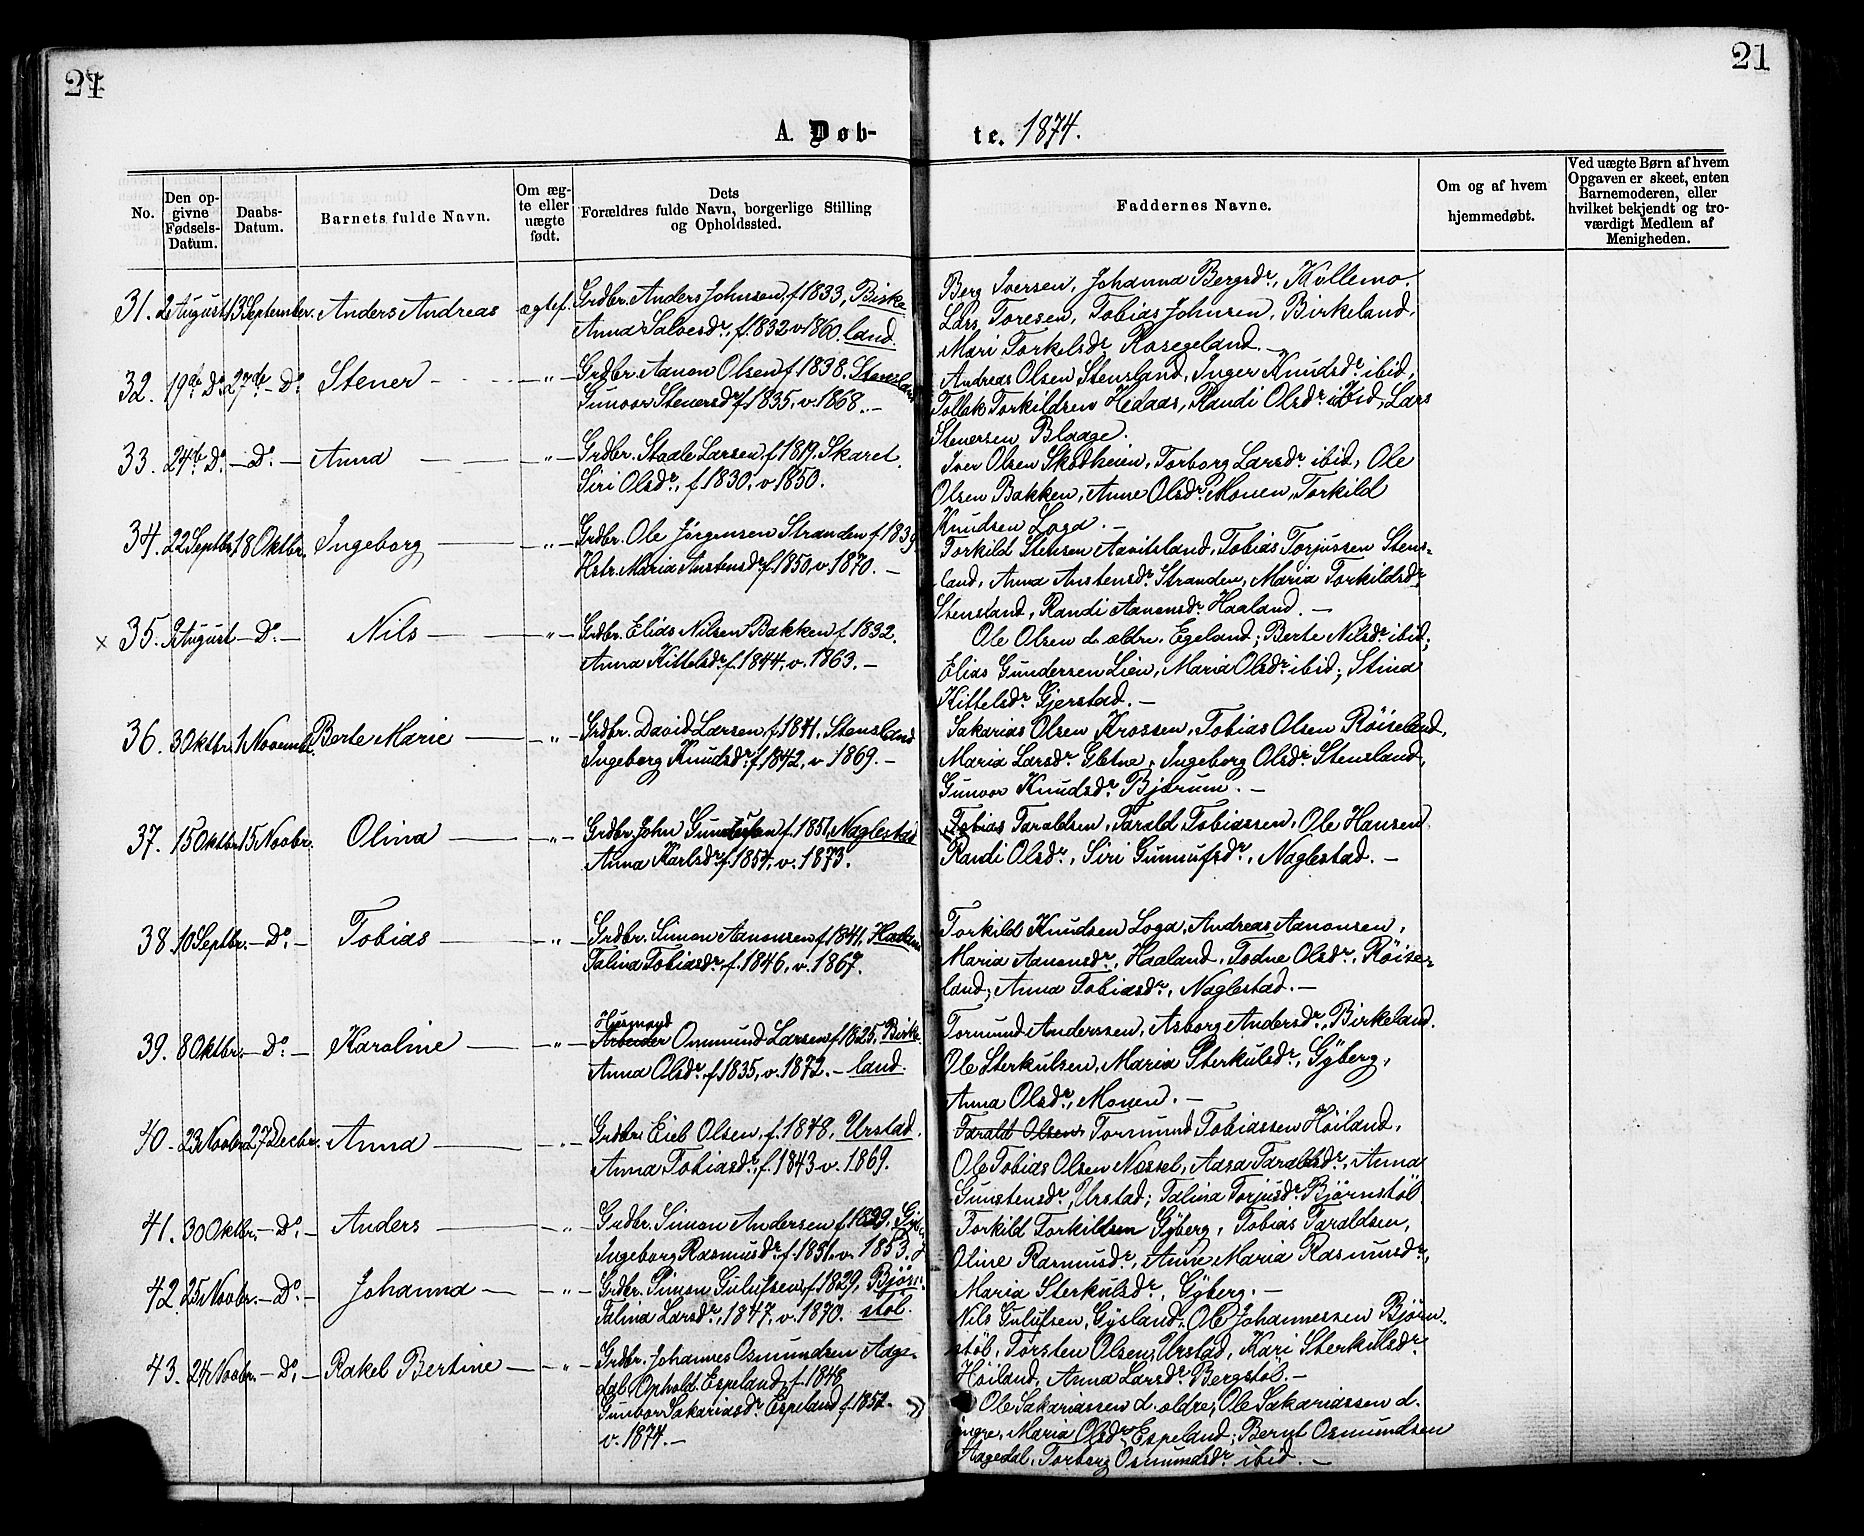 21
21
A. Døb-
te. 1874.
No.
Den op-
givne
Fødsels-
Datum.
Daabs-
Datum.
Barnets fulde Navn.
Om æg-
te eller
uægte
født.
Dets
Forældres fulde Navn, borgerlige Stilling
og Opholdssted.
Faddernes Navne.
Om og af hvem
hjemmedøbt.
Ved uægte Børn af hvem
Opgaven er skeet, enten
Barnemoderen, eller
hvilket bekjendt og tro-
værdigt Medlem af
Menigheden.
31. 2 August 13 September. Anders Andreas ægtef. Grdbr. Anders Johnsen, f. 1833, Birke
Anna Salvesdr. f. 1832 v. 1860. land.
Berg Iversen, Johanna Bergsdr., Kollemo.
Lars Toresen, Tobias Johnsen, Birkeland,
Mari Torkelsdr. Rosegeland. —
32. 19de Do 27de - Do. Stener — " — Grdbr. Aanon Olsen f. 1838. Stensland
Gunvor Stenersdr. f. 1835, v. 1868. —
Andreas Olsen Stensland, Inger Knudsdr. ibid,
Tollak Torkildsen Hedaas, Randi Olsdr. ibid, Lars
Stenersen Blaage.
33. 24de Do. - Do. - Anna — " — Grdbr. Staale Larsen, f. 1819. Skaret.
Siri Olsdr., f. 1830. v. 1850.
Iver Olsen Skodheien, Torborg Larsdr. ibid, Ole
Olsen Bakken, Anne Olsdr. Monen, Torkild
Knudsen Loga. —
34. 22 Septbr. 18 Oktbr. Ingeborg — " — Grdbr. Ole Jørgensen Stranden f. 1839
Hstr. Maria Anstensdr. f. 1850, v. 1870. —
Torkild Stensen Aavitsland, Tobias Torjussen Stens-
land, Anna Anstensdr. Stranden, Maria Torkildsdr.
Stensland, Randi Aanonsdr. Haaland. —
x 35. 2 August - Do. - Nils — " — Grdbr. Elias Nilsen Bakken f. 1832.
Anna Kittelsdr. f. 1844, v. 1863. —
Ole Olsen d. ældre, Egeland; Berte Nilsdr. ibid;
Elias Gundersen Lien, Maria Olsdr. ibid; Stina
Kittelsdr. Gjerstad. —
36. 3 Oktbr. 1 Novembr. Berte Marie — " — Grdbr. David Larsen, f. 1841. Stensland
Ingeborg Knudsdr. f. 1842, v. 1869. —
Sakarias Olsen Krossen, Tobias Olsen Røiseland,
Maria Larsdr. Gletne, Ingeborg Olsdr. Stensland,
Gunvor Knudsdr. Bjærum. —
37. 15 Oktbr. 15 Novbr. Olina — " — Grdbr. John f. 1851, Naglestad
Anna Karlsdr. f. 1854, v. 1873.
Tobias Taraldsen, Tarald Tobiassen, Ole Hansen,
Randi Olsdr., Siri Gunnufsdr., Naglestad. —
38. 10 Septbr. - Do. - Tobias — " — Grdbr. Simon Aanonsen f. 1841, Haaland
Talina Tobiasdr. f. 1846, v. 1867.
Torkild Knudsen Loga, Andreas Aanonsen,
Maria Aanonsdr., Haaland, Todne Olsdr., Røise-
land; Anna Tobiasdr., Naglestad. —
39. 8 Oktbr. - Do. - Karoline — " — Husmand
Arbeider Ommund Larsen f. 1825, Birke
Anna Olsdr. f. 1835, v. 1872. — land.
Tormund Anderssen, Asborg Andersdr., Birkeland.
Ole Sterkulsen, Maria Sterkulsdr., Gyberg,
Anna Olsdr., Monen. —
40. 23 Novbr. 27 Decbr. Anna — " — Grdbr. Eieb Olsen, f. 1848, Urstad.
Anna Tobiasdr. f. 1843 v. 1869.
Tarald Olsen, Tormund Tobiassen Høiland,
Ole Tobias Olsen Nessel, Aasa Taraldsdr., Anna
Gunstensdr., Urstad; Talina Torjusdr. Bjørnstøl
41. 30 Oktbr. - Do. - Anders — " — Grdbr. Simon Andersen f. 1829, Gy
Ingeborg Rasmusdr. f. 1831, v. 1853.
Torkild Torkildsen Gyberg, Tobias Taraldsen,
Oline Rasmusdr., Anne Maria Rasmusdr.,
Maria Sterkulsdr., Gyberg. —
42. 25 Novbr. - Do. - Johanna — " — Grdbr. Simon Gulufsen, f. 1829, Bjørn-
Talina Larsdr., 1847, v. 1870. støl.
Nils Gulufsen, Gysland, Ole Johannessen Bjørn-
støl, Torsten Olsen, Urstad, Kari Sterkilsdr.
Høiland, Anna Larsdr. Bergstøl. —
43. 24 Novbr. - Do. - Rakel Bertine — " — Grdbr. Johannes Osmundsen Aage-
dal, Ophold. Espeland, f. 1848
Gunbor Sakariasdr. Espeland f. 1852.
v. 1874. —
Ole Sakariassen d. ældre; Ole Sakariassen d.
yngre, Maria Olsdr. Espeland; Bernt Osmundsen
Aagedal, Torberg Osmundsdr. ibid. —